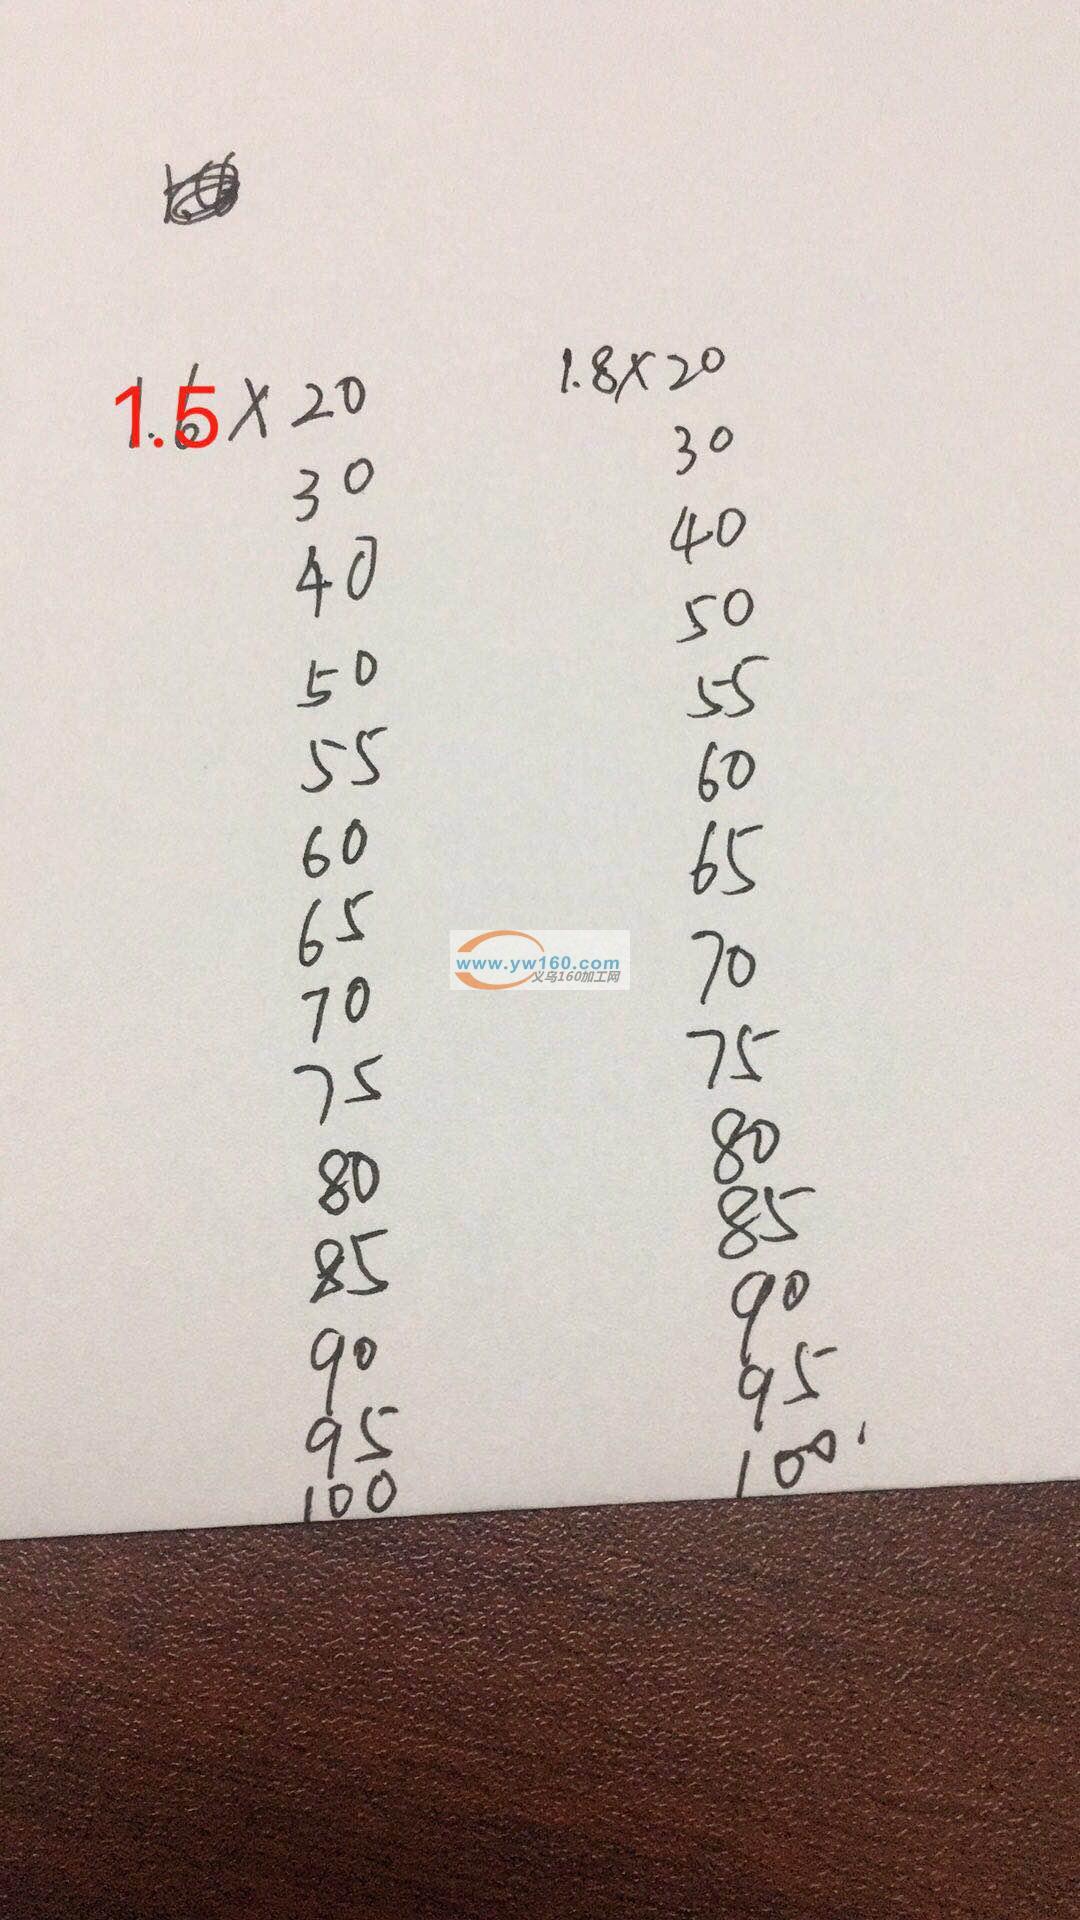 1.5 × 20
30
40
50
55
60
65
70
75
80
85
90
95
100
1.8 × 20
30
40
50
55
60
65
70
75
80
85
90
95
100
www.yw160.com
义乌160加工网